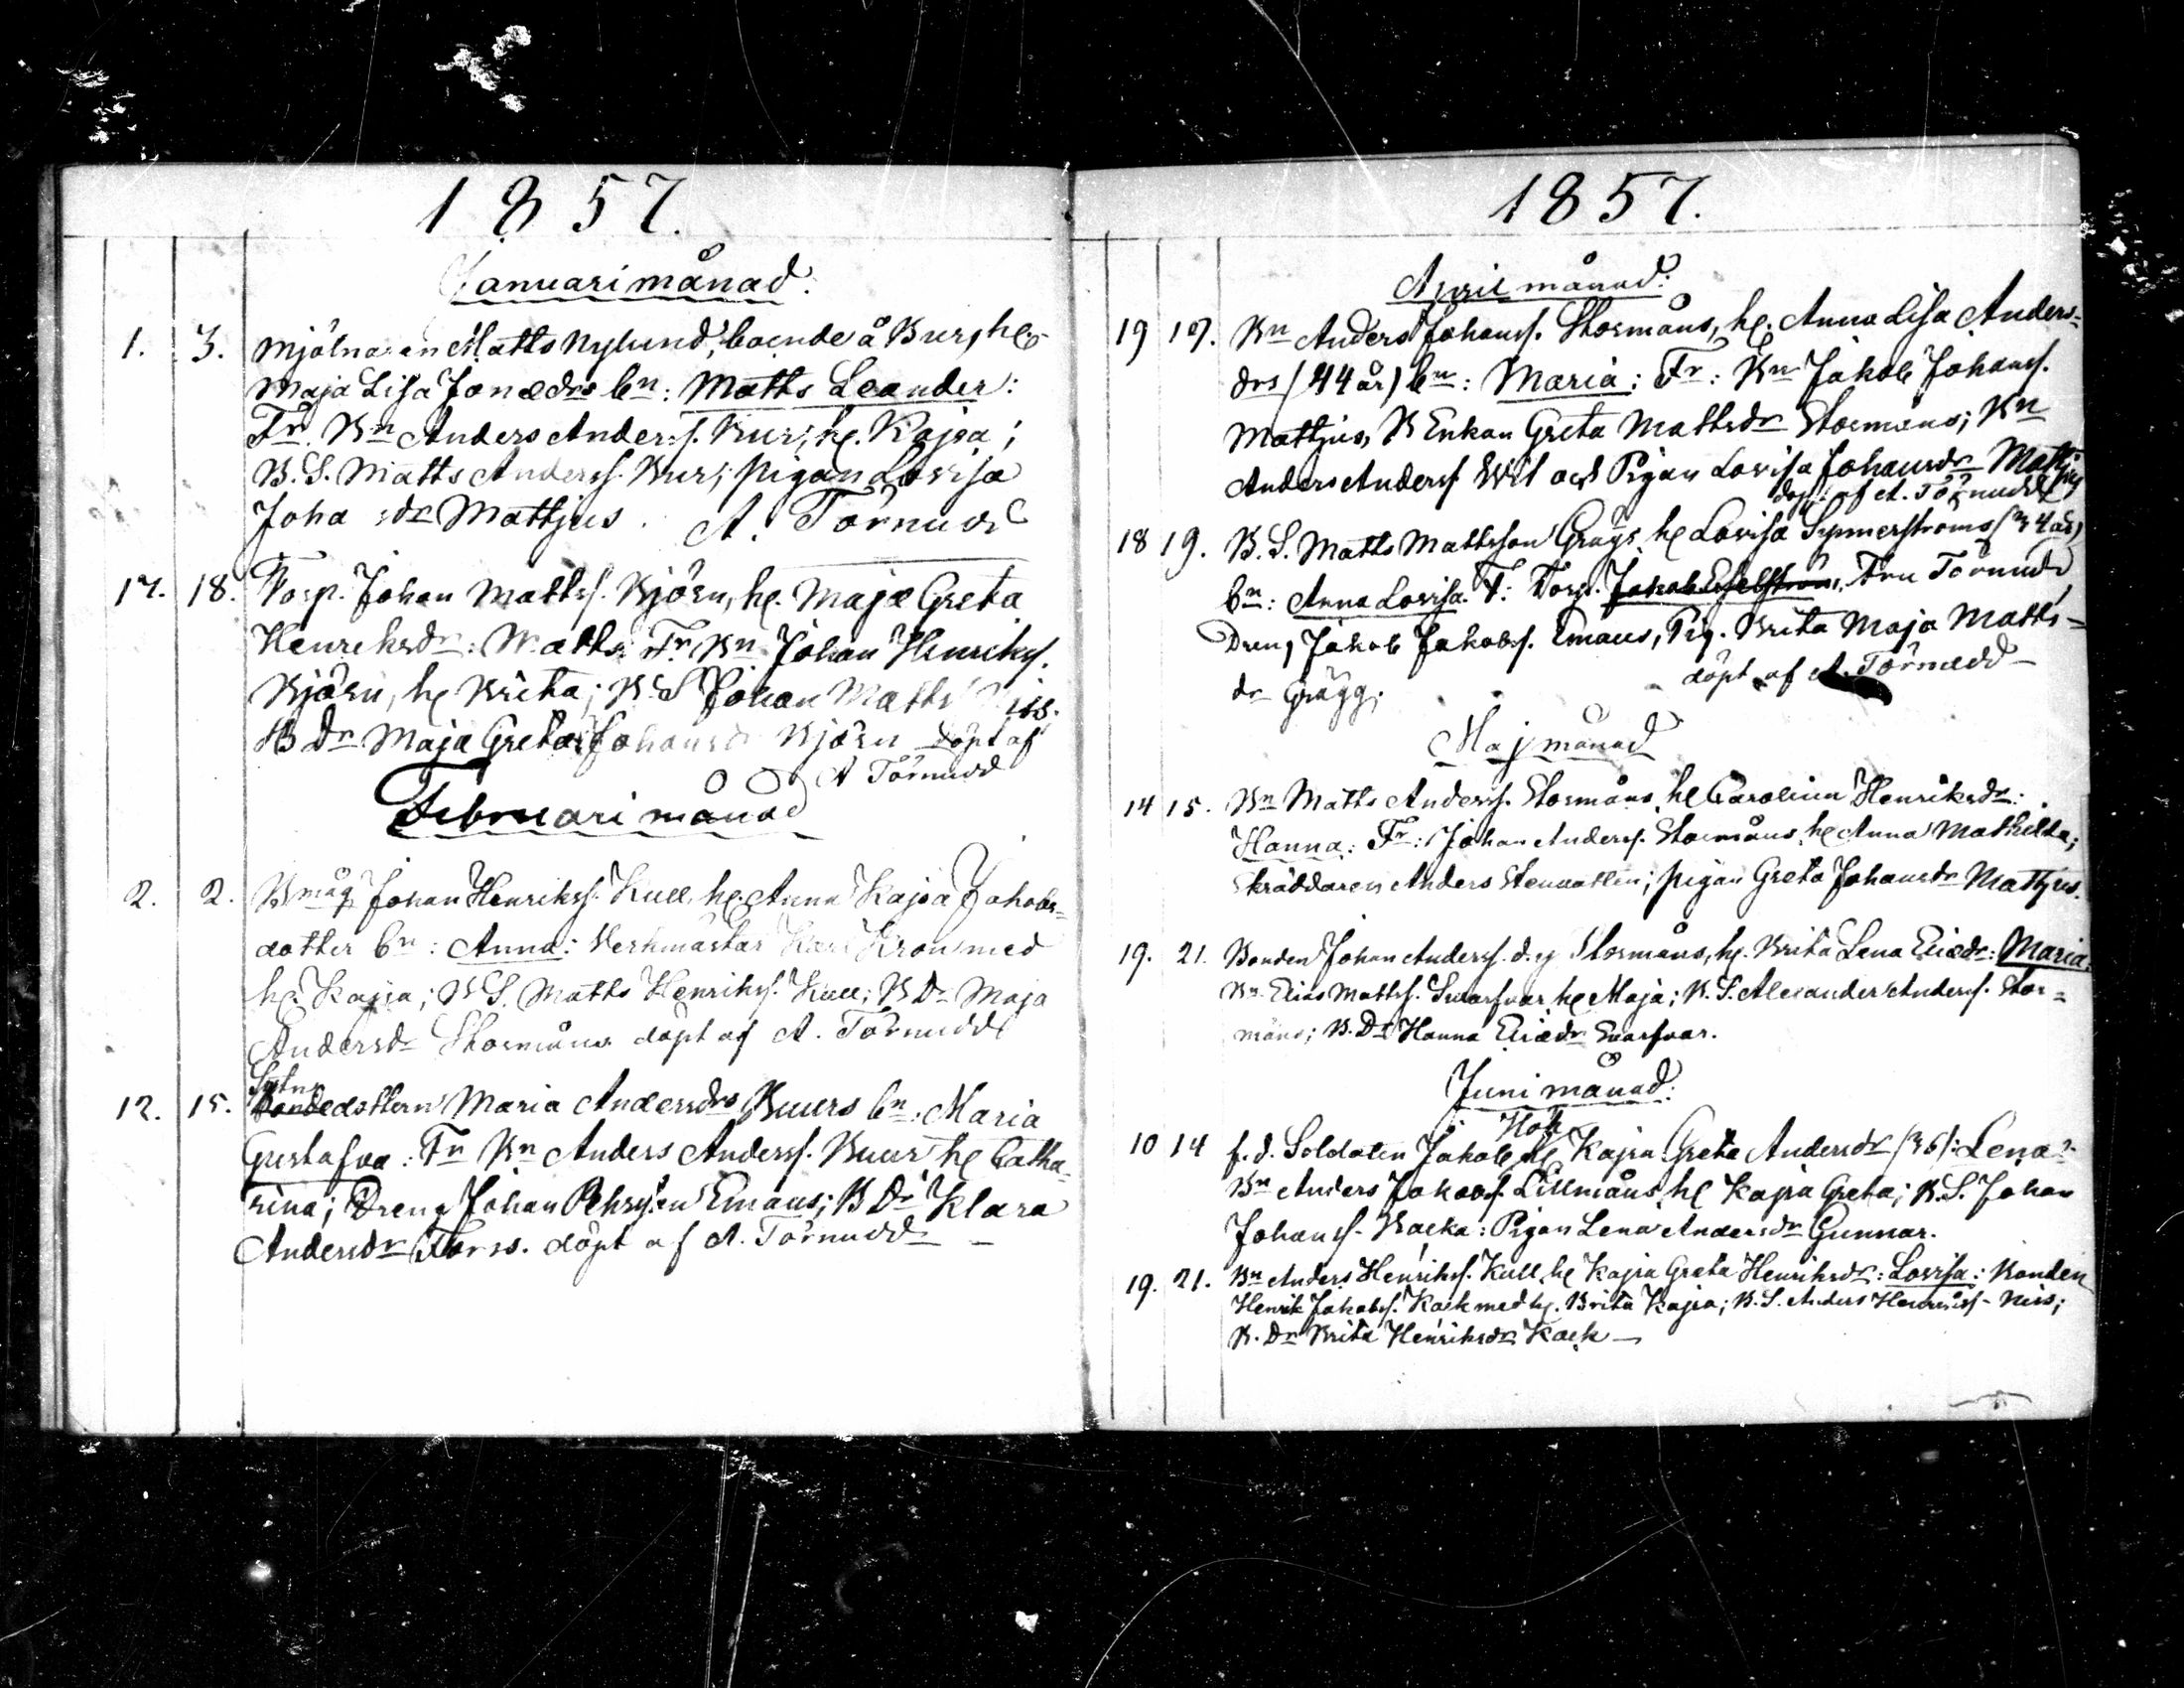 1857.
Januari månad.
1. 3. Mjölnaren Matts Nylund, boende å Bur, he
Maja Lisa Jonædrs bn: Matts Leander:
Fr. Bn Anders Anderss. Bur, he. Kajsa;
B. S. Matts Anderss. Bur; pigan Lovisa
Joha sdr Mattjus. A. Törnudd
17. 18. Torp. Johan Mattss. Björn, he. Maja Greta
Henriksdr: Matts Fr. Bn. Johan Henrikss.
Björn, he Brita; B. S Johan Matts
B Dr Maja Greta Johansdr Björn döpt af
A Törnudd
Februari månad
2. 2. Bmåg Johan Henrikss. Kull, he. Anna Kajsa Jakobs-
dotter bn: Anna: Verkmästar Karl Kron med
he. Kajsa; B S. Matts Henrikss. Kull; B Dr Maja
Andersdr Stormåns döpt af A. Törnudd
12. 15. dottern Maria Andersdrs Buurs bn: Maria
Gustafva: Fr Bn Anders Anderss. Buur he Catha-
rina; Dreng Johan Pehrsson Emaus; B Dr Klara
Andersdr Forss. döpt af A. Törnudd –
1857.
April månad.
19 19. Bn Anders Johanss. Stormåns, he. Anna Lisa Anders-
drs (44 år) bn: Maria: Fr: Bn Jakob Johanss.
Mattjus, B Enkan Greta Mattsdr Stormåns; Bn
Anders Anderss. och Pigan Lovisa Johansdr Mattjus
döpt af A. Törnudd
18 19. B. S. Matts Mattsson Gräggs he Lovisa Synnerströms (34 år)
bn: Anna Lovisa. F: Torp. Fru Törnudd,
Dreng Jakob Jakobss. Emaus, Pig. Brita Maja Matts-
dr Grägg; döpt af A. Törnudd –
Maj månad
14 15. Bn Matts Anderss. Stormåns, he Carolina Henriksdr:
Hanna: Fr: Johan Anderss. Stormåns, he Anna Mathilda;
Skräddaren Anders Stenvallin; pigan Greta Johansdr Mattjus.
19. 21. Bonden Johan Anderss. d. y Stormåns, he. Brita Lena Eliædr: Maria.
Bn. Elias Mattss. Svarfvar he Maja; B. S. Alexander Anderss. Stor-
måns; B. Dr Hanna Eliædr Svarfvar.
Juni månad.
Hök
10 14 f. d. Soldaten Jakob he Kajsa Greta Andersdr (36): Lena:
Bn Anders Jakobss. Lillmåns, he Kajsa Greta; B. S. Johan
Johanss. Backa: Pigan Lena Andersdr Gunnar.
19. 21. Bn Anders Henrikss. Kull, he Kajsa Greta Henriksdr: Lovisa: Bonden
Henrik Jakobss. Kack med he. Brita Kajsa; B. S. Anders Henrikss – Niss;
B. Dr Brita Henriksdr Kack –